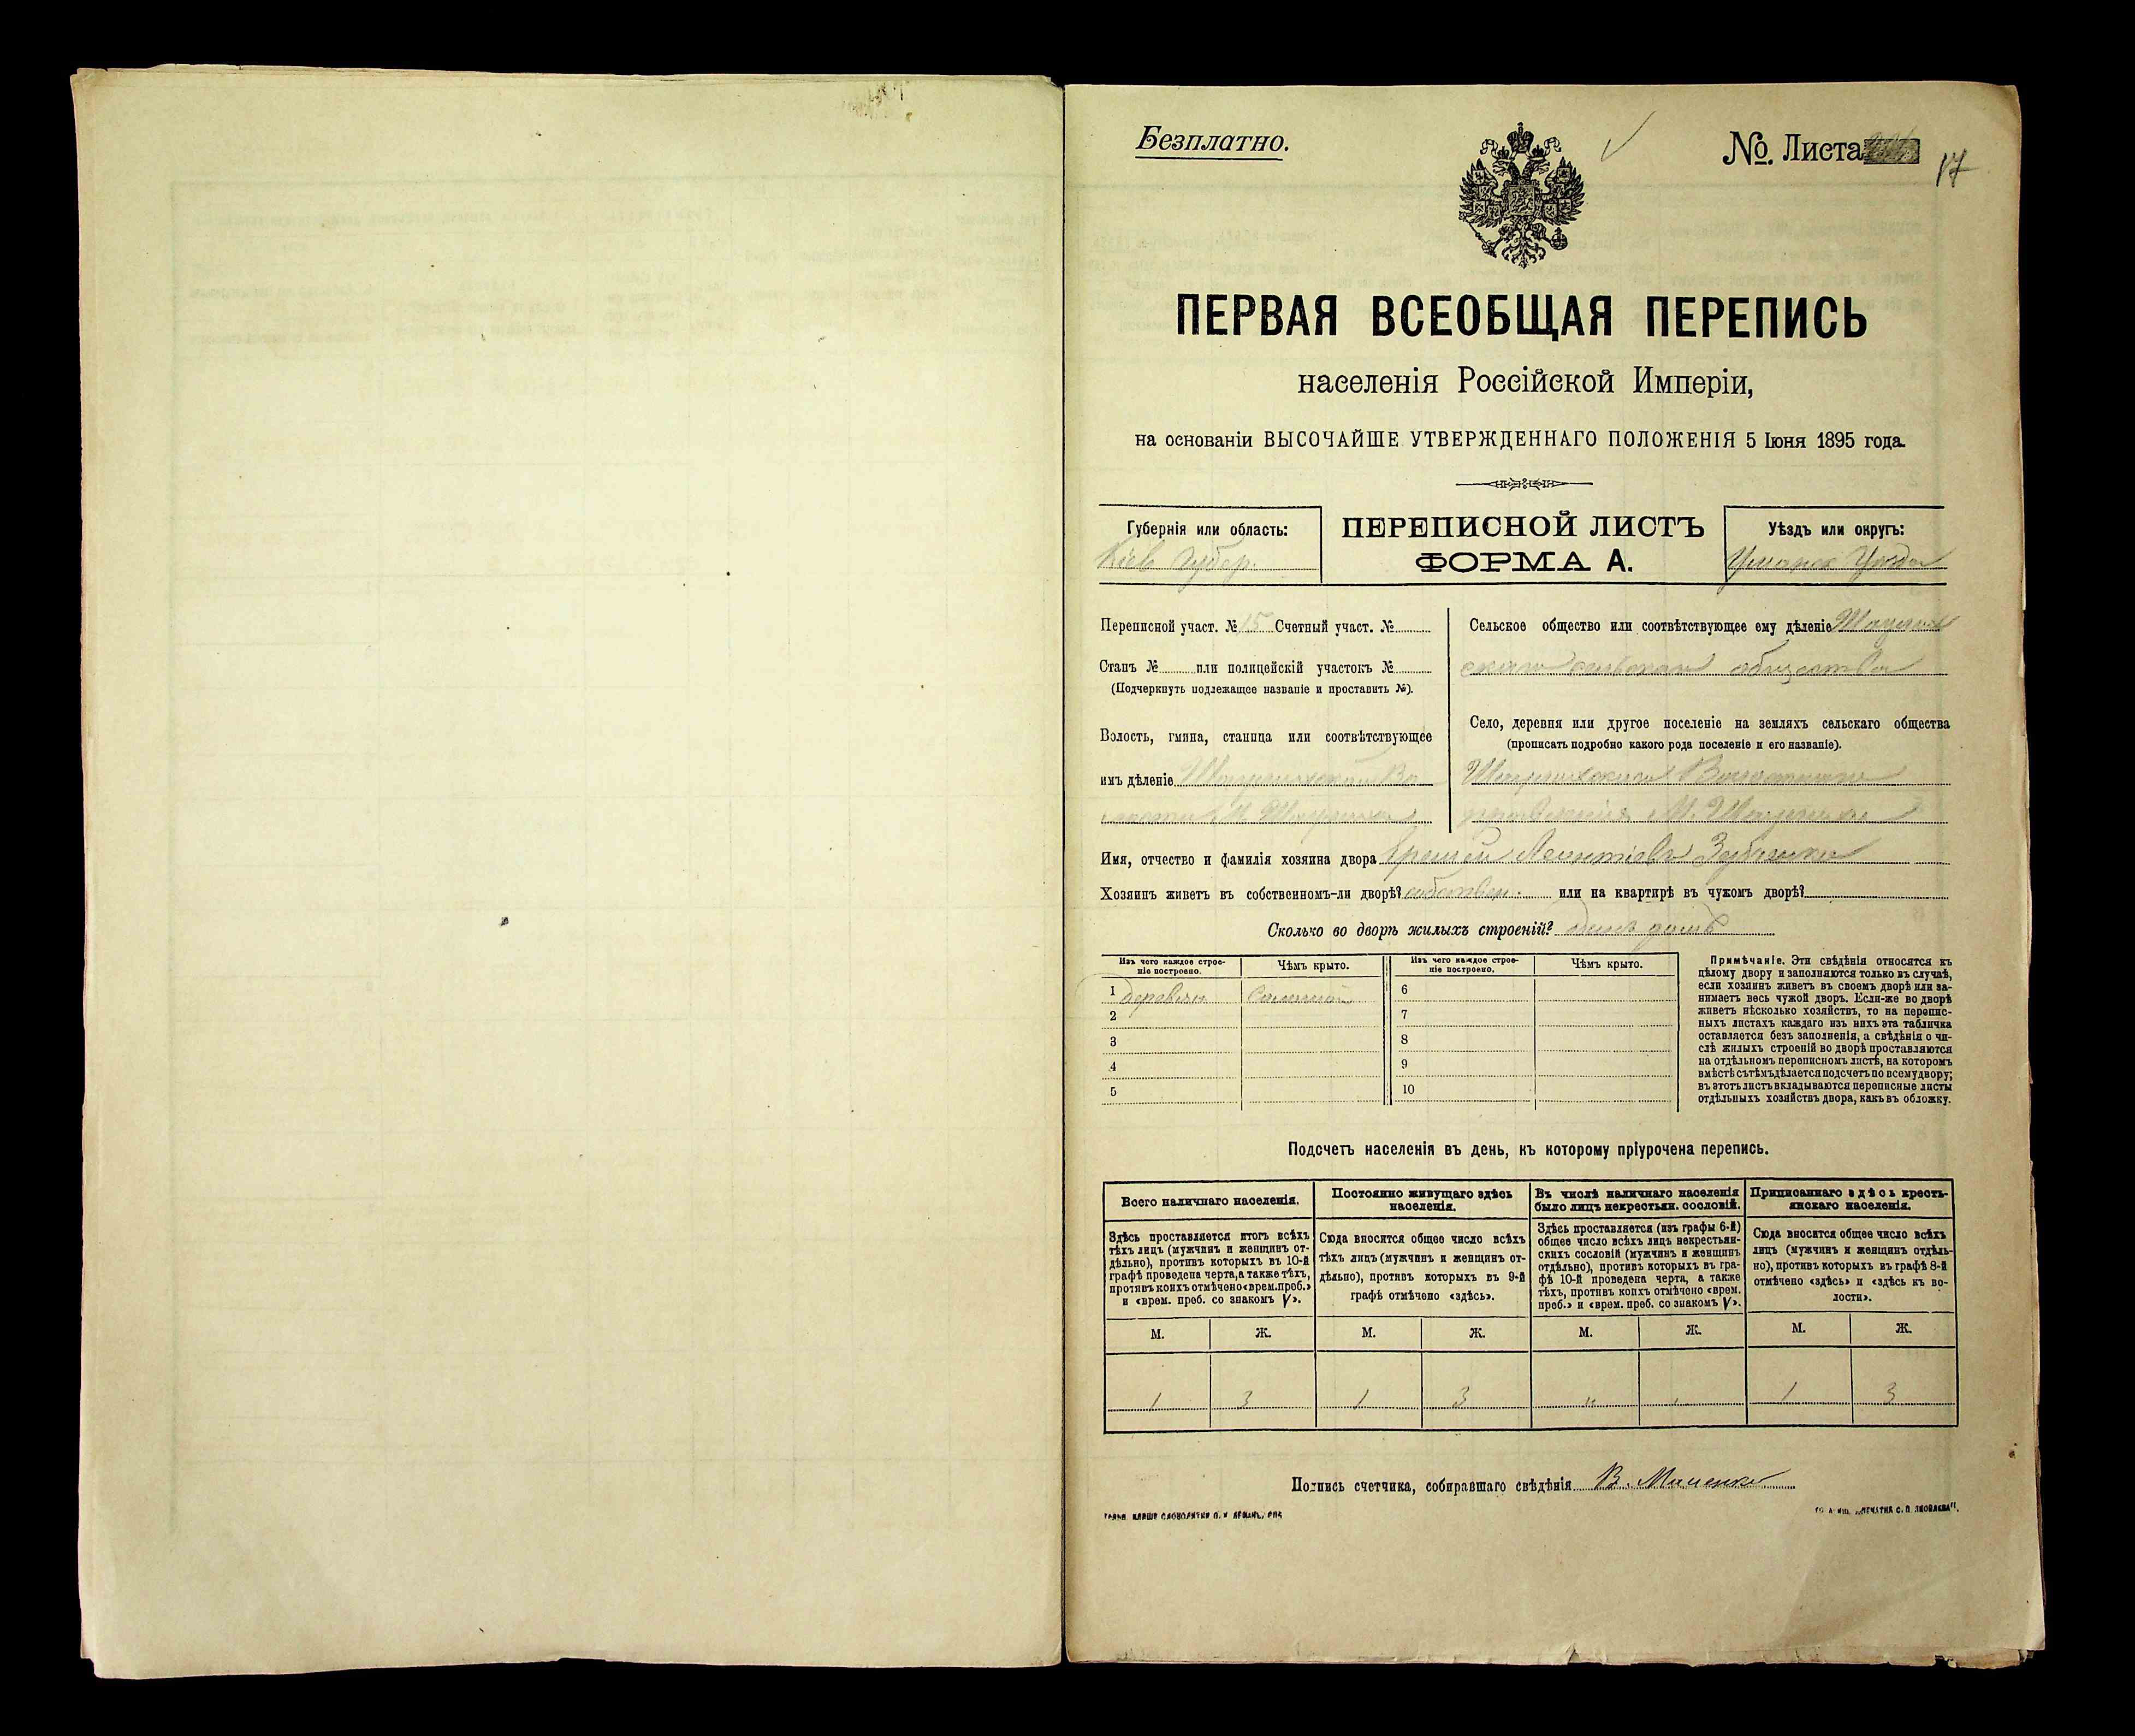 Безплатно.
№. Листа
17
ПЕРВАЯ ВСЕОБЩАЯ ПЕРЕПИСЬ
населенія Россійской Имперіи,
на основаніи ВЫСОЧАЙШЕ УТВЕРЖДЕННАГО ПОЛОЖЕНІЯ 5 Іюня 1895 года.
Губернія или область:
Кіев Губер.
ПЕРЕПИСНОЙ ЛИСТЪ
ФОРМА А.
Уѣздъ или округъ:
Уманск Уѣзда
Переписной участ. № 15 Счетный участ. №
Станъ № или полицейскій участокъ №
(Подчеркнуть подлежащее названіе и проставить №).
Волость, гмина, станица или соотвѣтствующее
имъ дѣленіе
Сельское общество или соотвѣтствующее ему дѣленіе
скаго сельскаго общества
Село, деревня или другое поселеніе на земляхъ сельскаго общества
(прописать подробно какого рода поселеніе и его названіе).
Имя, отчество и фамилія хозяина двора Леонтіевъ
Хозяинъ живетъ въ собственномъ-ли дворѣ? собствен. или на квартирѣ въ чужомъ дворѣ?
Сколько во дворѣ жилыхъ строеній? одинъ домъ
Изъ чего каждое строеніе построено.
Чѣмъ крыто.
Изъ чего каждое строеніе построено.
Чѣмъ крыто.
1 деревян Соломой
2
3
4
5
6
7
8
9
10
Примѣчаніе. Эти свѣдѣнія относятся къ
цѣлому двору и заполняются только въ случаѣ,
если хозяинъ живетъ въ своемъ дворѣ или за-
нимаетъ весь чужой дворъ. Если-же во дворѣ
живетъ нѣсколько хозяйствъ, то на перепис-
ныхъ листахъ каждаго изъ нихъ эта табличка
оставляется безъ заполненія, а свѣдѣнія о чи-
слѣ жилыхъ строеній во дворѣ проставляются
на отдѣльномъ переписномъ листѣ, на которомъ
вмѣстѣ съ тѣмъ дѣлается подсчетъ по всему двору;
въ этотъ листъ вкладываются переписные листы
отдѣльныхъ хозяйствъ двора, какъ въ обложку.
Подсчетъ населенія въ день, къ которому пріурочена перепись.
Всего наличнаго населенія.
Здѣсь проставляется итогъ всѣхъ
тѣхъ лицъ (мужчинъ и женщинъ от-
дѣльно), противъ которыхъ въ 10-й
графѣ проведена черта, а также тѣхъ,
противъ коихъ отмѣчено «врем. преб.»
и «врем. преб. со знакомъ V».
Постоянно живущаго здѣсь
населенія.
Сюда вносится общее число всѣхъ
тѣхъ лицъ (мужчинъ и женщинъ от-
дѣльно), противъ которыхъ въ 9-й
графѣ отмѣчено «здѣсь».
Въ числѣ наличнаго населенія
было лицъ некрестьян. сословій.
Здѣсь проставляется (изъ графы 6-й)
общее число всѣхъ лицъ некрестьян-
скихъ сословій (мужчинъ и женщинъ
отдѣльно), противъ которыхъ въ гра-
фѣ 10-й проведена черта, а также
тѣхъ, противъ коихъ отмѣчено «врем.
преб.» и «врем. преб. со знакомъ V».
Приписаннаго здѣсь кресть-
янскаго населенія.
Сюда вносится общее число всѣхъ
лицъ (мужчинъ и женщинъ отдѣль-
но), противъ которыхъ въ графѣ 8-й
отмѣчено «здѣсь» и «здѣсь къ во-
лости».
М. Ж. М. Ж. М. Ж. М. Ж.
1 3 1 3 " " 1 3
Подпись счетчика, собиравшаго свѣдѣнія В.